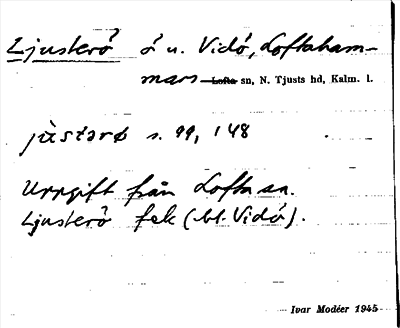 Ljusterö ö u. Vidö, Loftaham-
mars Lofta sn, N. Tjusts hd, Kalm. l.
jùstərø s. 99, 148
Uppgift från Lofta sn.
Ljusterö fek (bl. Vidö).
Ivar Modéer 1945